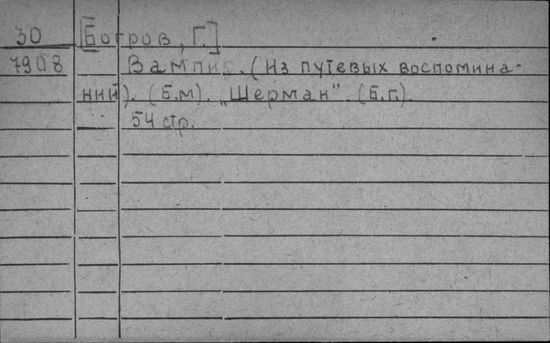 30 [Богров, Г.]
7908 Вампир. (Из путевых воспомина-
ний). (Б.м). „Шерман". (Б.г.).
54 стр.